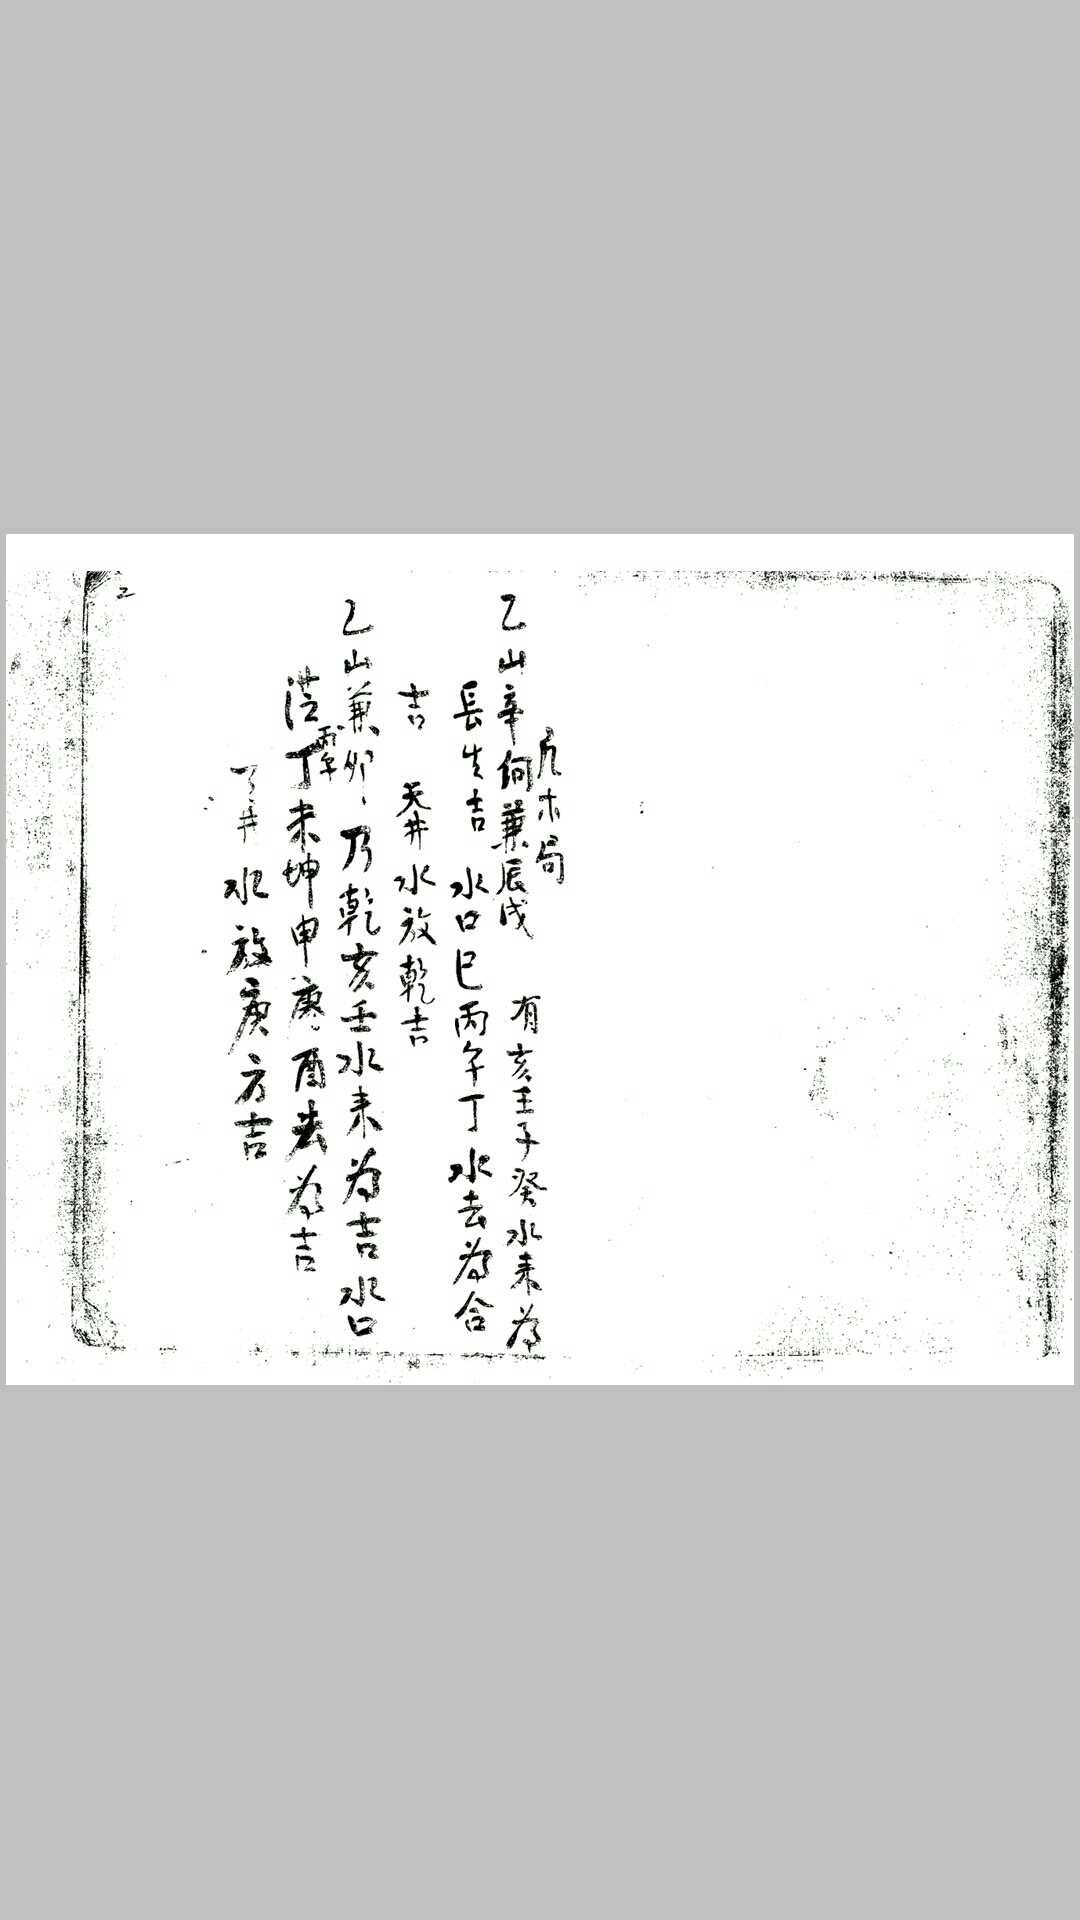 乙山辛向兼辰戌 有亥壬子癸水来為
木局
長生吉 水口巳丙午丁水去為合
吉 天井水放乾吉
乙山兼卯乃乾亥壬水来為吉水口
丙午
丁未坤申庚酉去為吉
井水放庚方吉
2